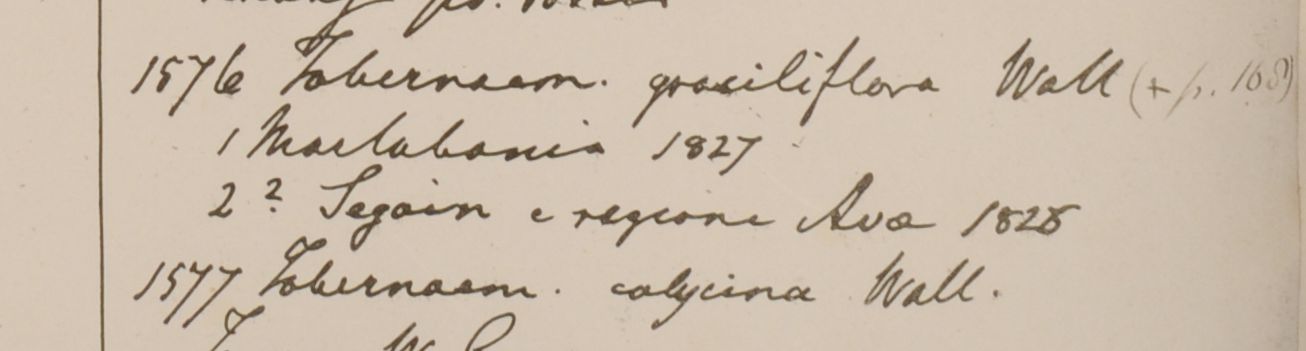 1576 Tabernaem. graciliflora Wall (+ p. 168)
1 Martabania 1827
2 ? Segain e regione Ava 1826
1577 Tabernaem. calycina Wall.